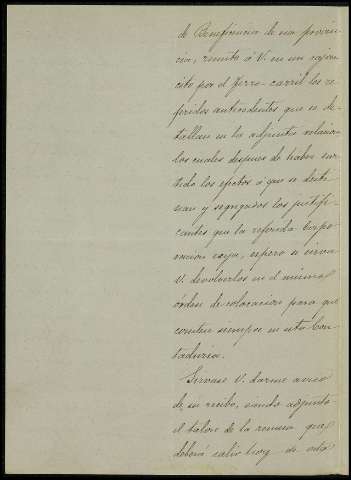 de Beneficencia de esa provin-
cia, remito á V. en un cajon-
cito por el ferro-carril los re-
feridos antecedentes que se de-
tallan en la adjunta relacion
los cuales despues de haber sur-
tido los efectos á que se desti-
nan y segregados los justifi-
cantes que la referida Corpo-
racion exija, espero se sirva
V. devolverlos en el mismo
órden de colocacion para que
consten siempre en esta Con-
taduria.
Sirvase V. darme aviso
de su recibo, siendo adjunto
el talon de la remesa que
deberá salir hoy de esta